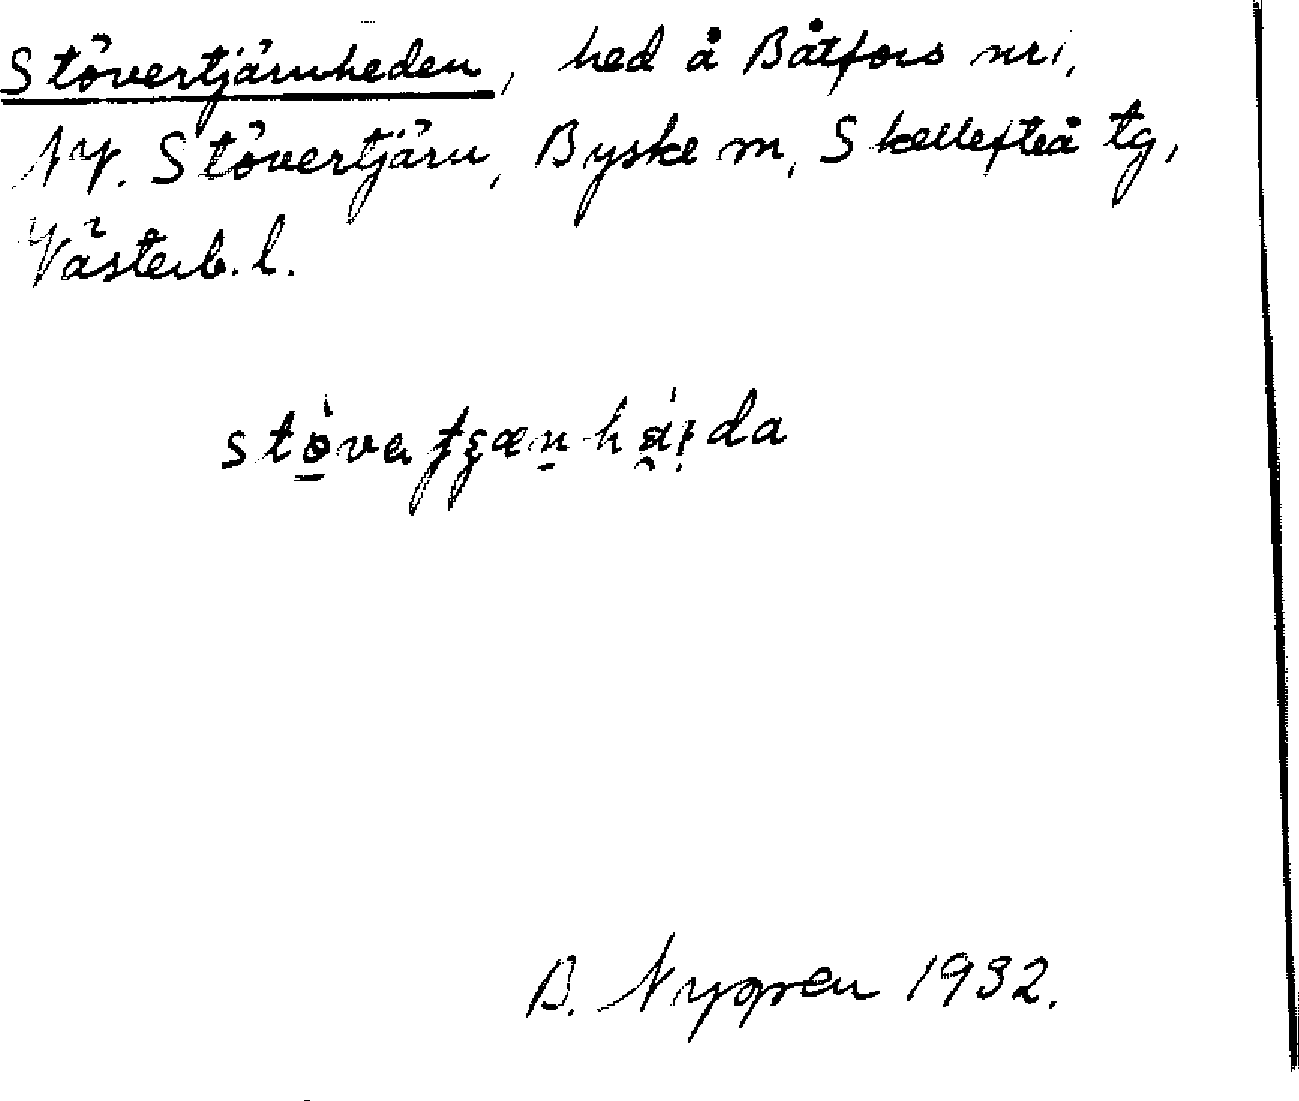 Stövertjärnheden, hed å Båtfors nri,
NV. Stövertjärn, Byske sn, Skellefteå tg,
Västerb. l.
B. Nygren 1932.